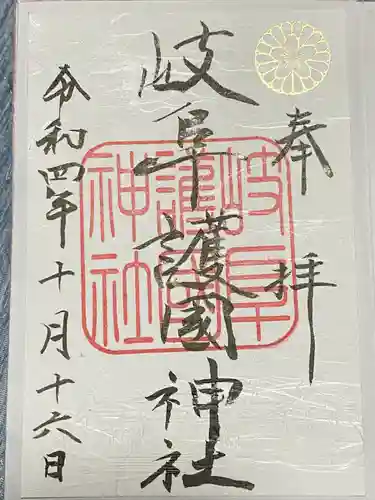 奉拝
岐阜護國神社
岐阜護國神社
令和四年十月十六日